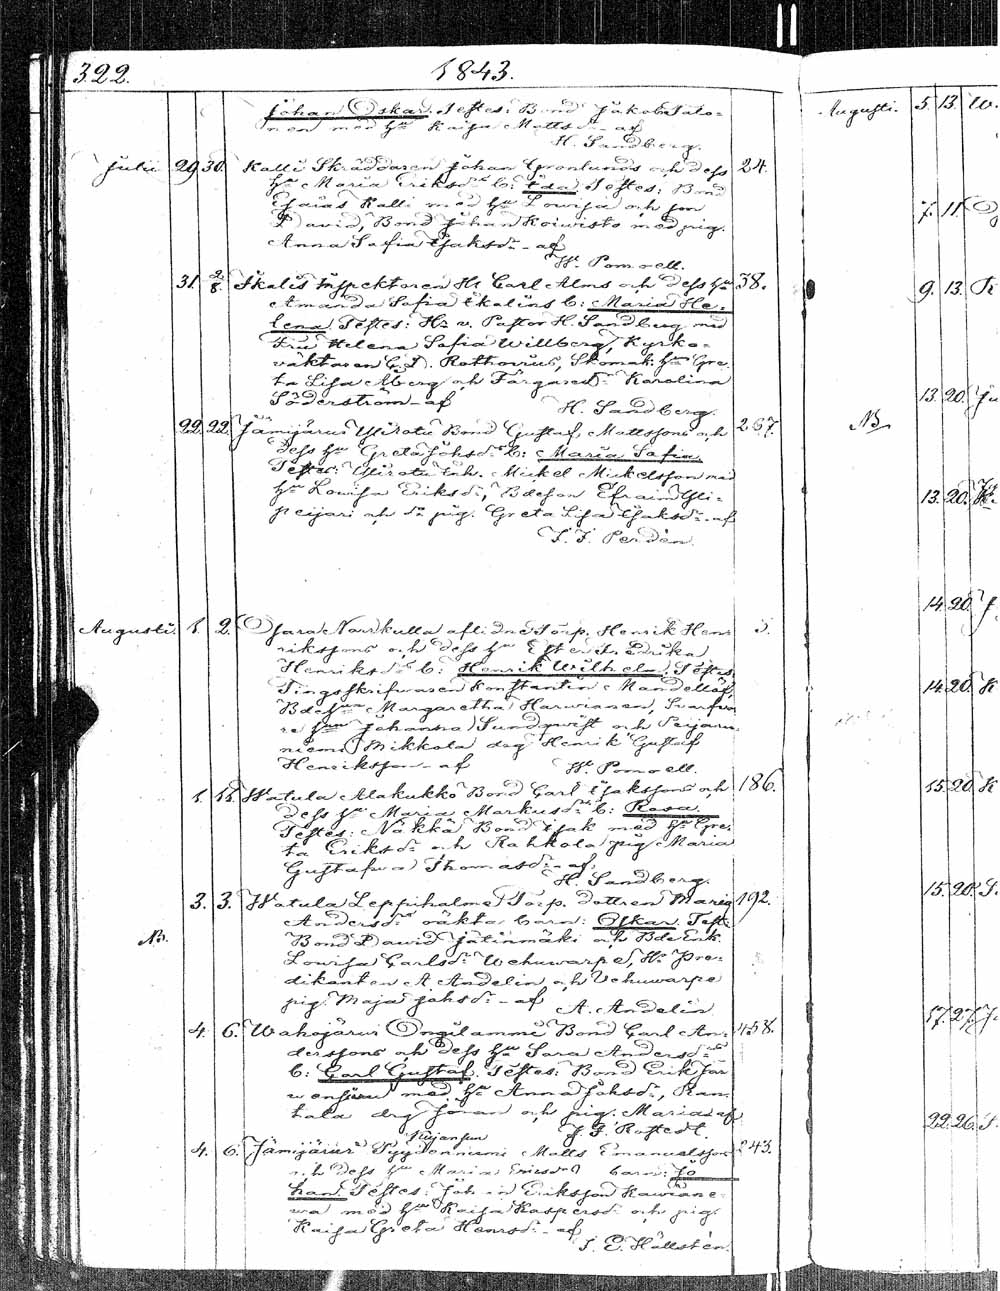 322. 1843.
Johan Oskar. Testes: Bond Jakob Salo-
nen med hu Kaisa Mattsdr af
H. Sandberg.
Julii 29 30. Kalli Skräddaren Johan Grönlunds och dess 24.
hu Maria Eriksdr b: Ida. Testes: Bond
Esaias Kalli med hu Lowisa och son
David, Bond Johan Koiwisto med pig.
Anna Sofia Isaksdr - af
W. Pomoell.
31. 2/8. Ikalis Inspektoren Hr Carl Alms och dess hu 38.
Amanda Sofia Ekelins b: Maria He-
lena Testes: Hr v. Pastor H. Sandberg med
Fru Helena Sofia Willberg, Kyrko-
väktaren G. D. Rothovius, Skomak: hu Gre-
ta Lisa Åberg och Färgared: Karolina
Söderström - af
H. Sandberg.
22. 22. Jämijärvi Ylirotu Bond Gustaf Mattssons och 267.
dess hu Greta Johsdr b: Maria Safia
Testes: Ylirotu Inh. Mickel Mickelsson med
hu Lowisa Eriksdr, Bdeson Efraim Yli-
peijari och dr pig. Greta Lisa Isaksdr - af
J. F. Perdén.
Augusti. 1. 2. Osara Narkulla aflidne Torp. Henrik Hen- 5.
rikssons och dess hu Ester Fredrika
Henriksdr b: Henrik Wilhelm. Testes:
Tingsskrifwaren Konstantin Mandellöf,
Bdehu Margaretha Harwianen, Swarfwa-
re hu Johanna Sundqwist och Peijari-
niemi Mikkola drg Henrik Gustaf
Henriksson - af W. Pomoell.
1. 11. Watula Alakukko Bond Carl Isakssons och 186.
dess hu Maria Markusdr b: Rosa.
Testes: Näkkä Bond Isak med hu Gre-
ta Eriksdr och Rahkola pig Maria
Gustafwa Thomasdr - af
H. Sandberg.
3. 3. Watula Leppihalme Torp. dottren Maria 192.
Andersdr oäkta barn: Oskar Test:
NB. Bond David Jätinmäki och Bde Enk.
Lowisa Carlsdr Wehuwarpe, Hr Pre-
dikanten A. Andelin och Vehuwarpe
pig. Maja Johsdr - af
A. Andelin.
4. 6. Wahojärvi Ongilammi Bond Carl An- 458.
derssons och dess hu Sara Andersdr
b: Carl Gustaf. Testes: Bond Erik Jär-
wensivu med hu Anna Johsdr, Ran-
tala drg Johan och pig. Maria af
J. F. Rostedt.
4. 6. Jämijärvi Pyydönniemi Matts Emanuelsson 243.
och dess hu Maria Ericsdr barn: Jo-
han. Testes: Johan Eriksson Kawiane-
wa med hu Kaisa Kaspersdr och pig.
Kaisa Greta Henrsdr - af
J. E. Hällstén.
Augusti. 5. 13. W.
7. 11. O
9. 13. K
13. 20. Ju
NB
13. 20. K.
14. 20. J
14. 20. K
15. 20. K
15. 20. S.
17. 27. J
22. 26. S.